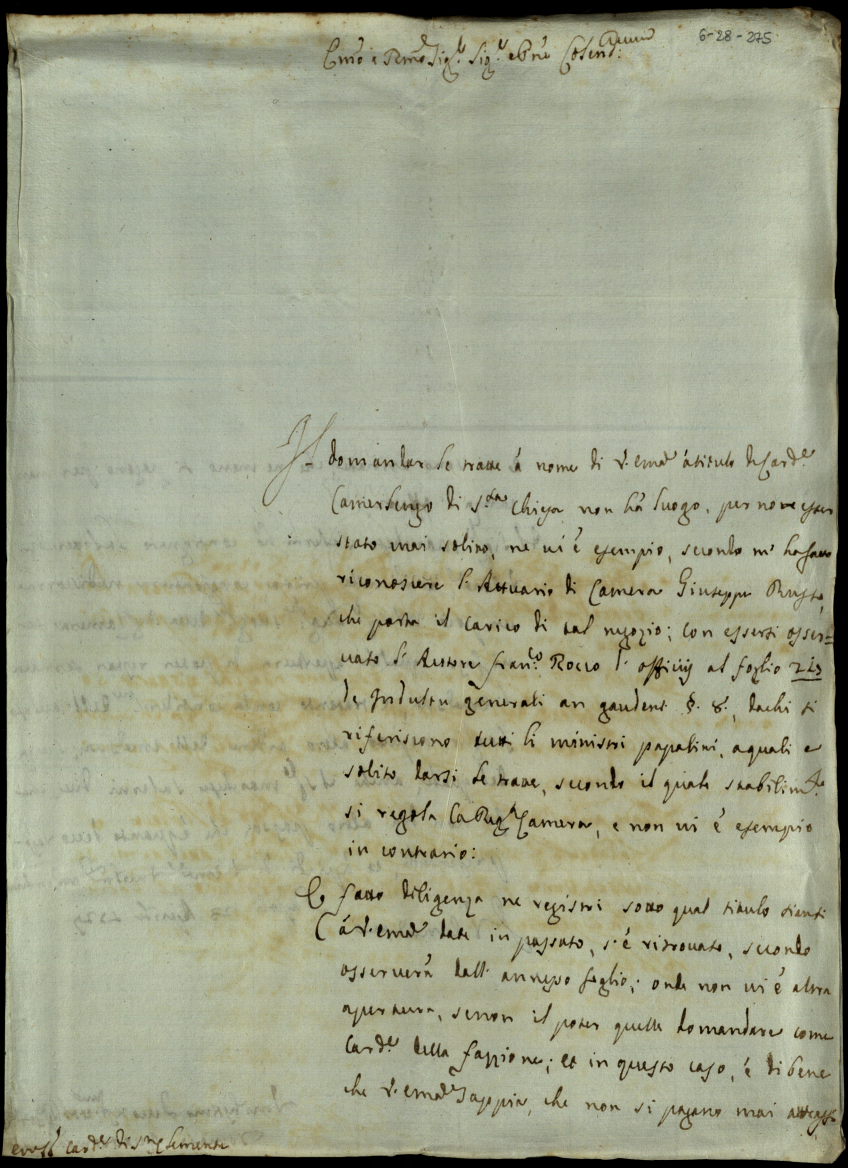 6-28-275
Emo e Rmo Sig.r Sig.r e Pne Colend:
Il domandar le tratte á nome di V. Em.a á titulo di Card.e
Camerlengo di S.ta Chiesa non há luogo, per non esser
stato mai solito, ne vi é esempio, secondo m'ha fatto
riconoscere l'Attuario di Camera Giuseppe Russo,
che porta il carico di tal negozio; con essersi osser=
uato l'Autore Fran.co Rocco de officijs al foglio 
de Indultu generali an gaudent §. 8., dachi si
riferiscono tutti li ministri papalini, aquali e
solito darsi le tratte, secondo il quale stabilim.to
si regola la Reg.a Camera, e non vi é esempio
in contrario:
E fatto diligenza ne registri sotto qual titulo sianti
á V. Em.a date in passato, s'é ritrovato, secondo
osserverá dall'annesso foglio; onde non vi é altra
apertura, senon il poter quelle domandare come
Card.e della fazzione; et in questo caso, é di bene
che V. Em.a sappia, che non si pagano mai
Card.e di S. Clemente